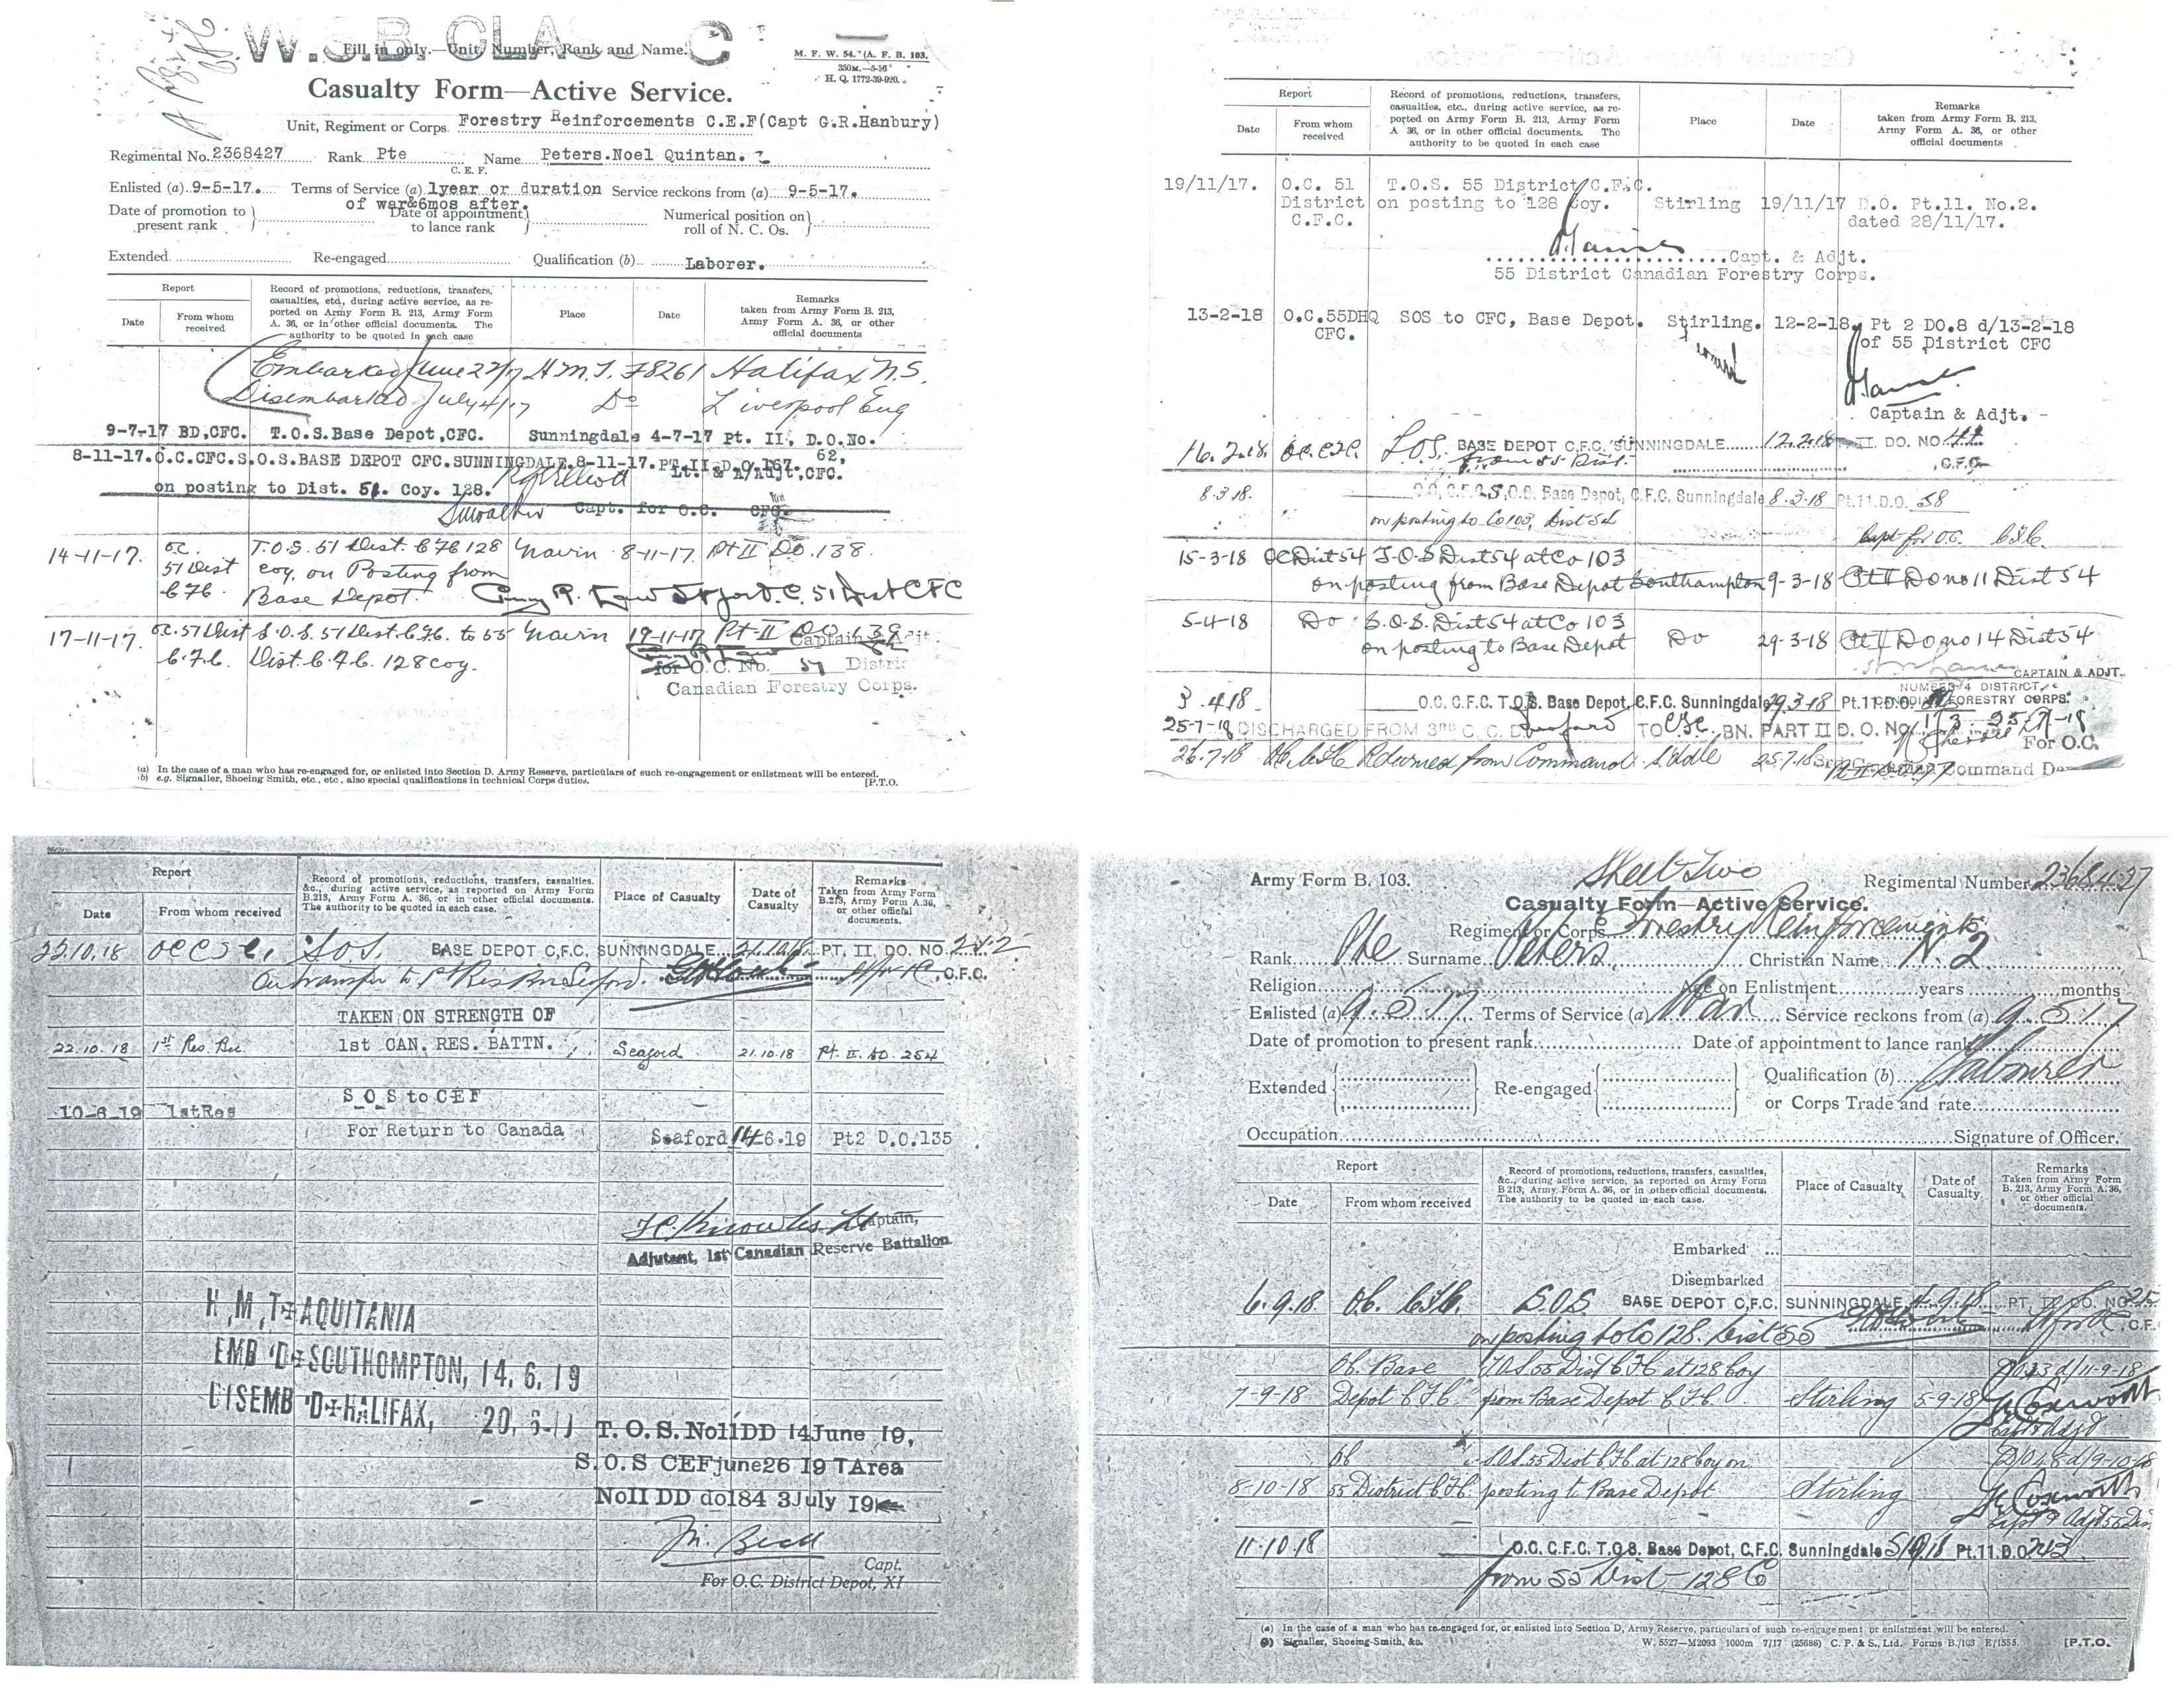 W.S.B. CLASS C
Fill in only.—Unit, Number, Rank and Name.
M. F. W. 54. (A. F. B. 103.
350M.—5-16
H. Q. 1772-39-920.
Casualty Form—Active Service.
Unit, Regiment or Corps. Forestry Reinforcements C.E.F(Capt G.R.Hanbury)
Regimental No. 2368427 Rank Pte Name Peters.Noel Quintan.
C. E. F.
Enlisted (a) 9-5-17. Terms of Service (a) 1year or duration Service reckons from (a) 9-5-17.
of war&6mos after.
Date of promotion to present rank Date of appointment to lance rank Numerical position on roll of N. C. Os.
Extended Re-engaged Qualification (b) Laborer.
Report
Date From whom received
Record of promotions, reductions, transfers, casualties, etc., during active service, as reported on Army Form B. 213, Army Form A. 36, or in other official documents. The authority to be quoted in each case
Place Date
Remarks taken from Army Form B. 213, Army Form A. 36, or other official documents
Embarked June 22/17 H.M.T. F8261 Halifax N.S.
Disembarked July 4/17 Do Liverpool Eng
9-7-17 BD,CFC. T.O.S.Base Depot,CFC. Sunningdale 4-7-17 Pt. II, D.O.No.
62,
8-11-17.O.C.CFC.S.O.S.BASE DEPOT CFC.SUNNINGDALE.8-11-17.PT.II.D.O.167.
Lt. & A/Adjt,CFC.
on posting to Dist. 51. Coy. 128.
Capt. for O.C. CFC.
14-11-17. O.C. 51 Dist C.F.C. T.O.S. 51 Dist. C.F.C. 128 Coy. on Posting from Base Depot. Mavin 8-11-17. Pt II DO.138.
O.C. 51 Dist CFC
17-11-17. O.C. 51 Dist C.F.C. S.O.S. 51 Dist. C.F.C. to 55 Dist. C.F.C. 128 Coy. Mavin 19-11-17 Pt-II
Captain & Adjt.
for O.C. No. 51 District
Canadian Forestry Corps.
(a) In the case of a man who has re-engaged for, or enlisted into Section D. Army Reserve, particulars of such re-engagement or enlistment will be entered.
(b) e.g. Signaller, Shoeing Smith, etc., etc., also special qualifications in technical Corps duties. [P.T.O.
Report
Date From whom received
Record of promotions, reductions, transfers, casualties, etc., during active service, as reported on Army Form B. 213, Army Form A 36, or in other official documents. The authority to be quoted in each case
Place Date
Remarks taken from Army Form B. 213, Army Form A. 36, or other official documents
19/11/17. O.C. 51 T.O.S. 55 District C.F.C.
District on posting to 128 Coy. Stirling 19/11/17 D.O. Pt.11. No.2.
C.F.C. dated 28/11/17.
Capt. & Adjt.
55 District Canadian Forestry Corps.
13-2-18 O.C.55DHQ SOS to CFC, Base Depot. Stirling. 12-2-18. Pt 2 DO.8 d/13-2-18
CFC. of 55 District CFC
Captain & Adjt.
16.2.18 OC. CFC T.O.S. BASE DEPOT C.F.C. SUNNINGDALE 12.2.18 II. DO. NO 41
from 55 Dist. C.F.C.
8.3.18. O.C. C.F.C. S.O.S. Base Depot, C.F.C. Sunningdale 8.3.18 Pt.11.D.O. 58
on posting to Co 103, Dist 54
Capt for O.C. C.F.C.
15-3-18 OC Dist 54 T.O.S Dist 54 at Co 103
on posting from Base Depot Southampton 9-3-18 Pt II DO no 11 Dist 54
5-4-18 Do S.O.S. Dist 54 at Co 103
on posting to Base Depot Do 29-3-18 Pt II DO no 14 Dist 54
CAPTAIN & ADJT.
NUMBER 54 DISTRICT,
CANADIAN FORESTRY CORPS.
3.4.18 O.C. C.F.C. T.O.S. Base Depot, C.F.C. Sunningdale 29.3.18 Pt.11.D.O.
25-7-18 DISCHARGED FROM 3RD C. C. D. Seaford TO CFC. BN. PART II D. O. NO. 173. 25-7-18
For O.C.
26.7.18 OC. CFC Returned from Command 25.7.18
Command Depot
Report
Date From whom received
Record of promotions, reductions, transfers, casualties, &c., during active service, as reported on Army Form B.213, Army Form A. 36, or in other official documents. The authority to be quoted in each case.
Place of Casualty Date of Casualty
Remarks Taken from Army Form B.213, Army Form A.36, or other official documents.
22.10.18 OC CFC, S.O.S. BASE DEPOT C.F.C. SUNNINGDALE 21.10.18 PT. II. DO. NO. 252
On transfer to 1st Res Bn Seaford. C.F.C.
TAKEN ON STRENGTH OF
22.10.18 1st Res. Bn. 1st CAN. RES. BATTN. Seaford 21.10.18 Pt. II. DO. 254
S O S to CEF
10-6-19 1stRes
For Return to Canada Seaford 14-6-19 Pt2 D.O.135
Captain,
Adjutant, 1st Canadian Reserve Battalion
H.M.T. AQUITANIA
EMB'D SOUTHOMPTON, 14.6.19
DISEMB'D HALIFAX, 20.6.
T.O.S. No11DD 14June 19,
S.O.S CEFjune26 19 TArea
No11 DD do184 3July 19
M. Bell
Capt.
For O.C. District Depot, XI
Army Form B. 103. Sheet Two Regimental Number 2368427
Casualty Form—Active Service.
Regiment or Corps Forestry Reinforcements
Rank Pte Surname Peters, Christian Name N. 2
Religion Age on Enlistment years months
Enlisted (a) 9.5.17. Terms of Service (a) War Service reckons from (a) 9.5.17
Date of promotion to present rank Date of appointment to lance rank
Extended Re-engaged Qualification (b) Labourer
or Corps Trade and rate
Occupation Signature of Officer.
Report
Date From whom received
Record of promotions, reductions, transfers, casualties, &c., during active service, as reported on Army Form B 213, Army Form A. 36, or in other official documents. The authority to be quoted in each case.
Place of Casualty Date of Casualty
Remarks Taken from Army Form B. 213, Army Form A. 36, or other official documents.
Embarked
Disembarked
6.9.18. OC. CFC. S.O.S. BASE DEPOT C.F.C. SUNNINGDALE 4.9.18 PT. II. DO. NO
on posting to Co 128. Dist 55 C.F.
OC. Base T.O.S 55 Dist C F C at 128 Coy d/11-9-18
7-9-18 Depot C F C. from Base Depot C.F.C. Stirling 5-9-18
Capt & Adjt
OC S.O.S. 55 Dist C F C. at 128 Coy on
8-10-18 55 District C F C. posting to Base Depot Stirling
Capt & Adjt 55 Dis
11-10-18 O.C. C.F.C. T.O.S. Base Depot, C.F.C. Sunningdale Pt.11.D.O 243
from 55 Dist 128 C
(a) In the case of a man who has re-engaged for, or enlisted into Section D, Army Reserve, particulars of such re-engagement or enlistment will be entered.
(b) Signaller, Shoeing-Smith, &c. W. 5527—M2093 1000m 7/17 (25686) C. P. & S., Ltd. Forms B./103 E/1555. [P.T.O.